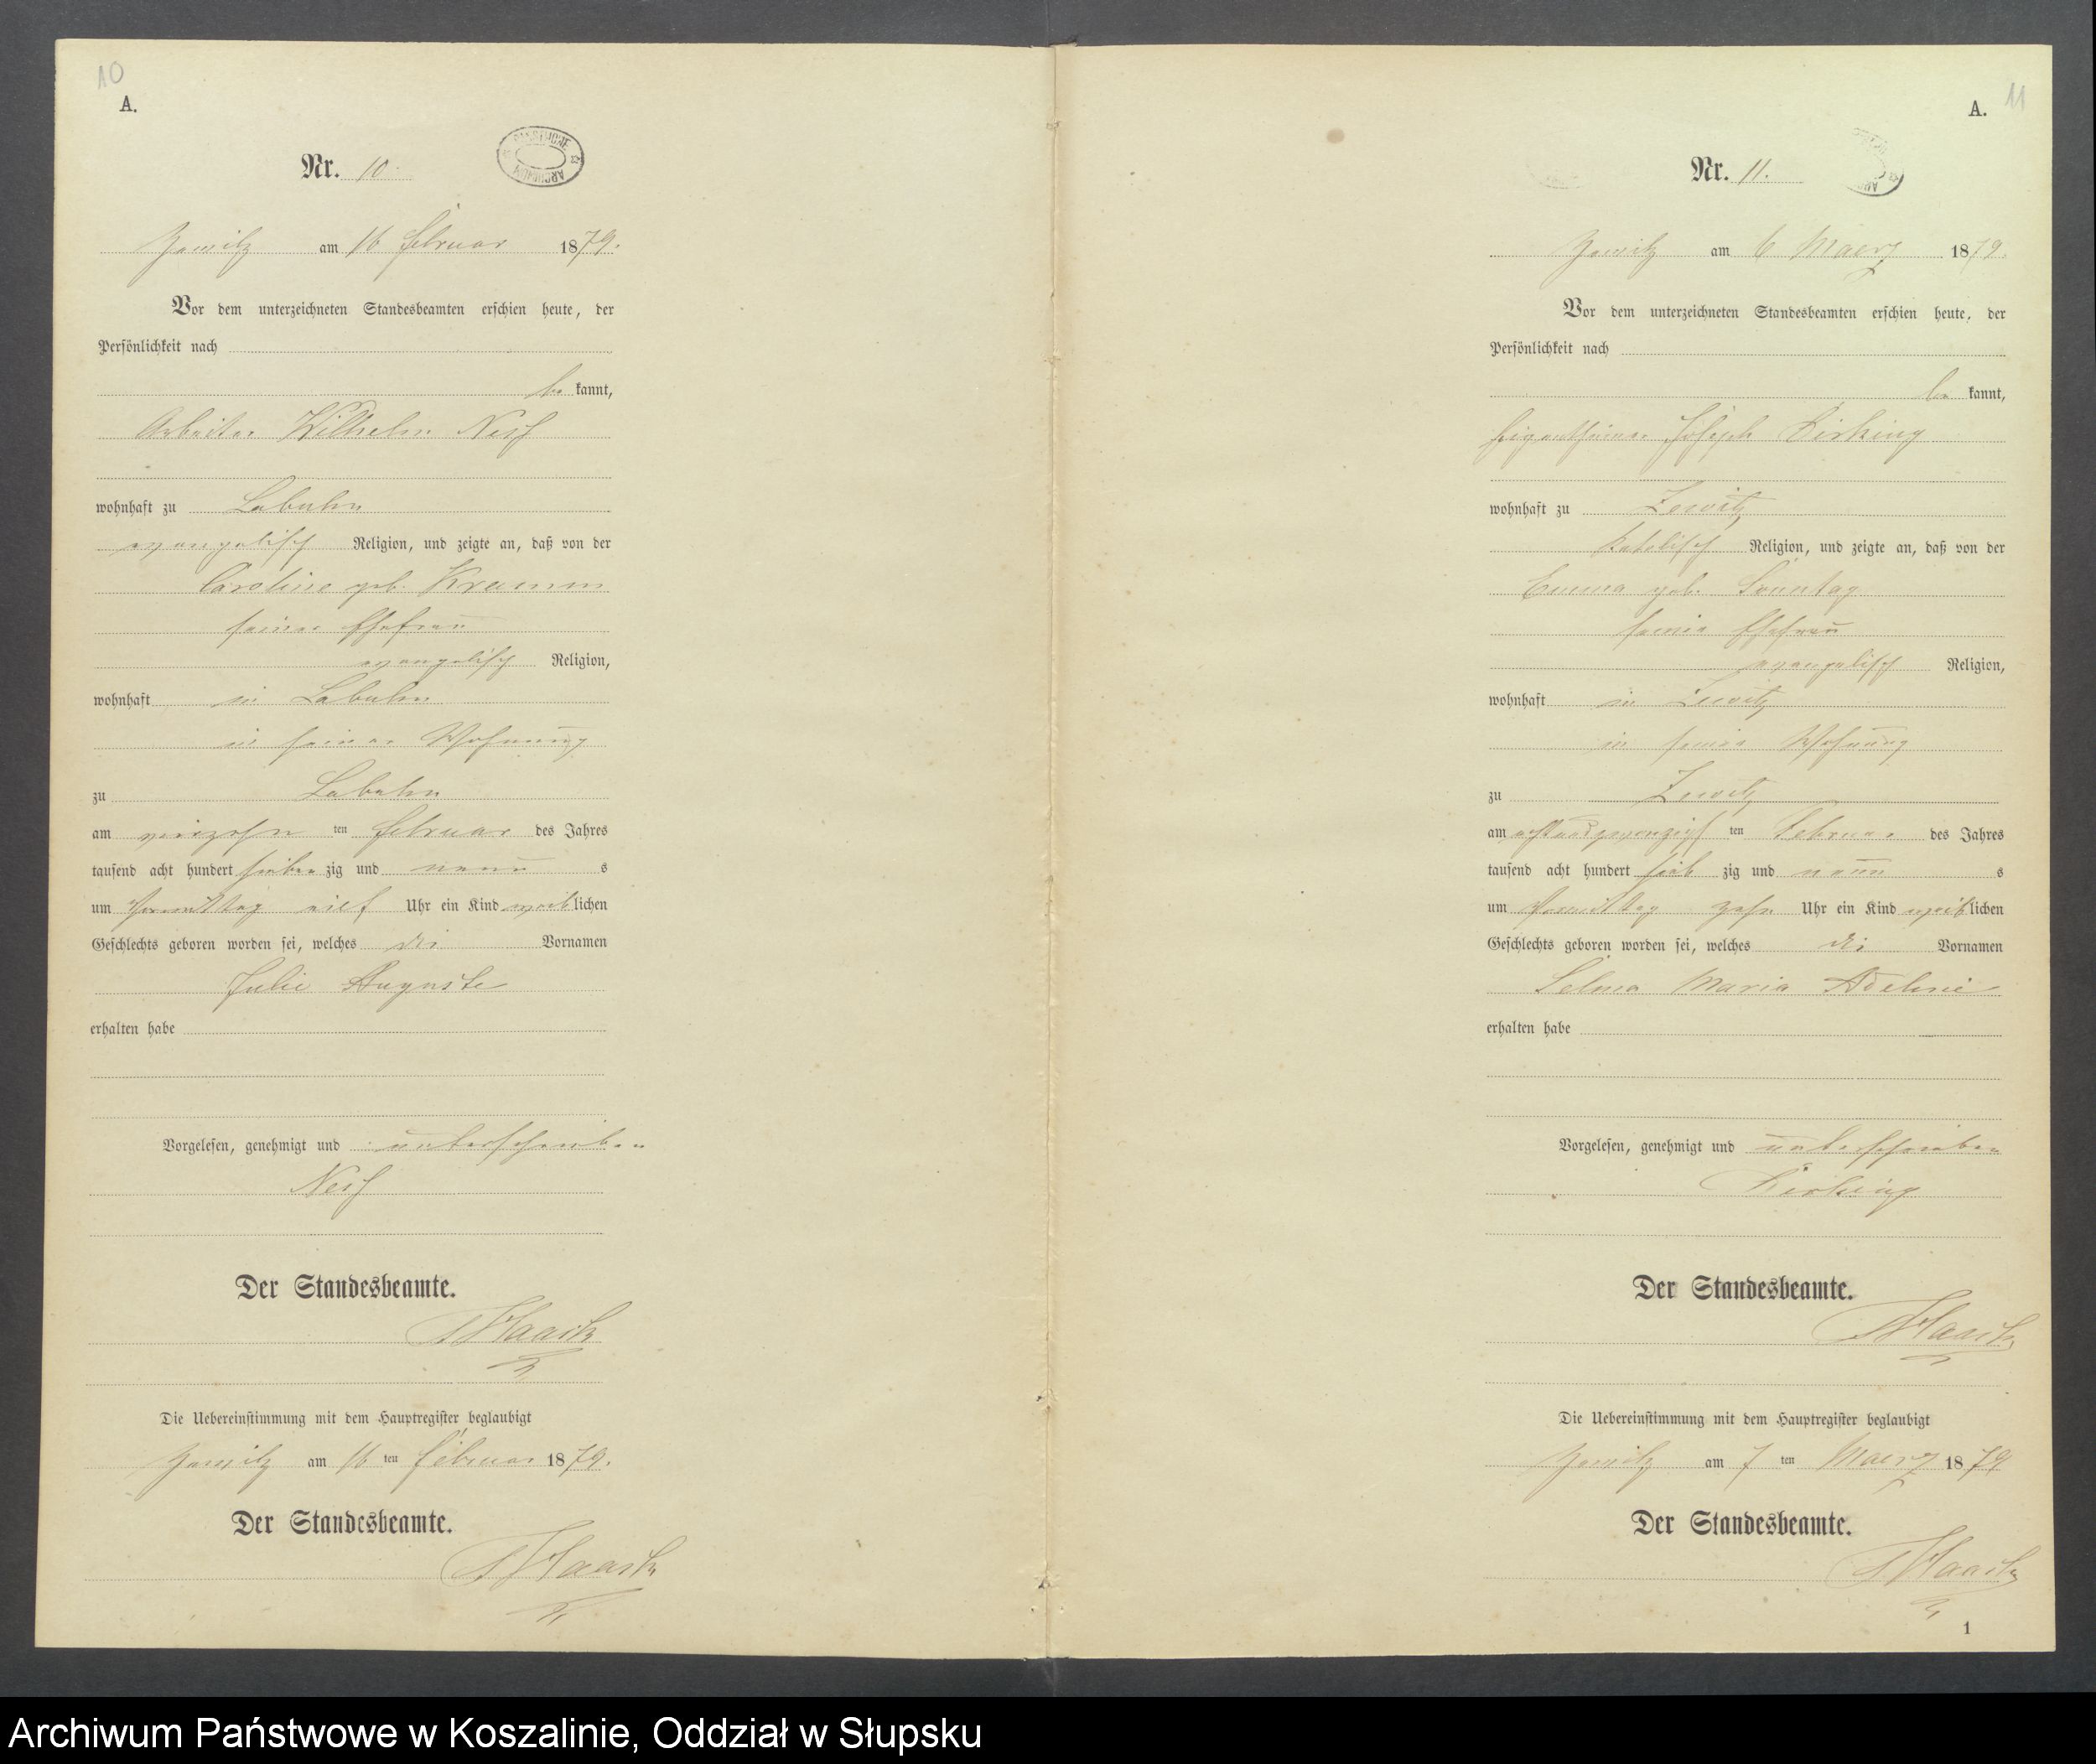 10
A.
Nr. 10.
am 16 Februar 1879.
Vor dem unterzeichneten Standesbeamten erschien heute, der
Persönlichkeit nach
be kannt,
Arbeiter Wilhelm
wohnhaft zu Labuhn
evangelisch Religion, und zeigte an, daß von der
Caroline geb. Kramm
seiner Ehefrau
evangelisch Religion,
wohnhaft in Labuhn
in seiner Wohnung
zu Labuhn
am vierzehn ten Februar des Jahres
tausend acht hundert sieben zig und neun s
um Vormittag eilf Uhr ein Kind weiblichen
Geschlechts geboren worden sei, welches die Vornamen
Julie Auguste
erhalten habe
Vorgelesen, genehmigt und unterschrieben
Der Standesbeamte.
Die Uebereinstimmung mit dem Hauptregister beglaubigt
am 16 ten Februar 1879.
Der Standesbeamte.
11
A.
Nr. 11.
am 6 Maerz 1879.
Vor dem unterzeichneten Standesbeamten erschien heute, der
Persönlichkeit nach
be kannt,
Eigenthümer Joseph
wohnhaft zu Zewitz
katolisch Religion, und zeigte an, daß von der
Emma geb. Sonntag
seine Ehefrau
evangelisch Religion,
wohnhaft in Zewitz
in seine Wohnung
zu Zewitz
am achtundzwanzigst ten Februar des Jahres
tausend acht hundert sieb zig und neun s
um Vormittag zehn Uhr ein Kind weiblichen
Geschlechts geboren worden sei, welches die Vornamen
Selma Maria Adeline
erhalten habe
Vorgelesen, genehmigt und unterschrieben
Der Standesbeamte.
Die Uebereinstimmung mit dem Hauptregister beglaubigt
am 7 ten Maerz 1879
Der Standesbeamte.
1
Archiwum Państwowe w Koszalinie, Oddział w Słupsku